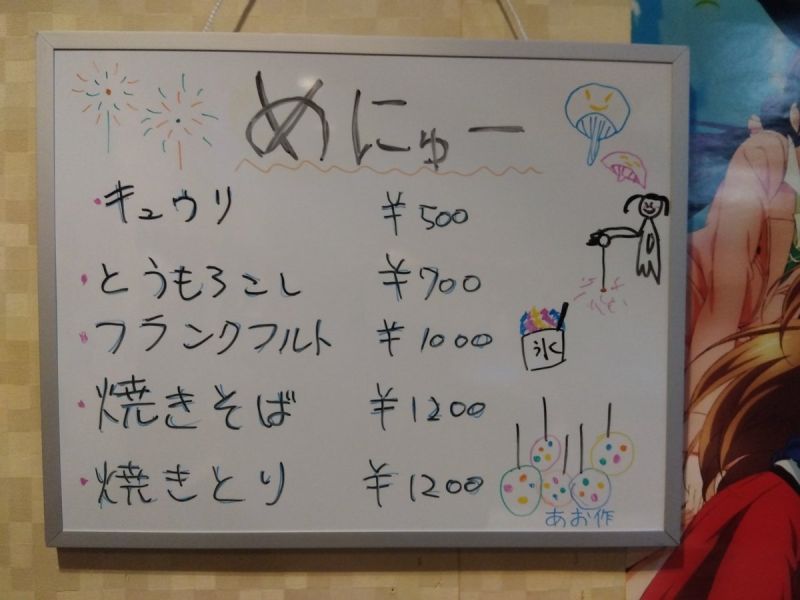 めにゅー
・キュウリ ¥500
・とうもろこし ¥700
・フランクフルト ¥1000
・焼きそば ¥1200
・焼きとり ¥1200
氷
あお作